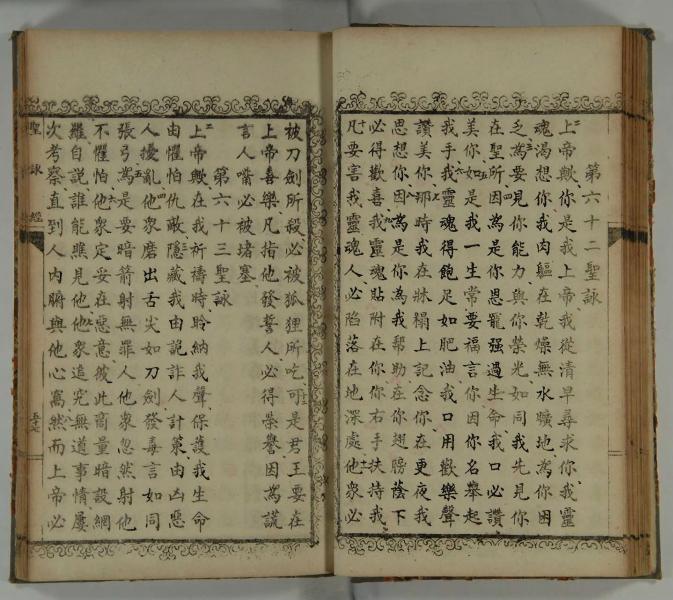 第六十二聖詠
上帝歟你是我上帝我從清早尋求你我靈
魂渴想你我肉軀在乾燥無水曠地為你困
乏為要見你能力與你榮光如同我先見你
在聖所因為是你恩寵強過生命我口必讚
美你如是我一生常要福言你因你名舉起
我手我靈魂得飽足如肥油我口用歡樂聲
讚美你那時我在牀榻上記念你在更夜我
思想你因為是你為我幫助在你翅膀蔭下
必得歡喜我靈魂貼附在你你右手扶持我
凡要害我靈魂人必陷落在地深處他衆必
被刀劍所殺必被狐狸所吃可是君王要在
上帝喜樂凡指他發誓人必得榮譽因為謊
言人嘴必被堵塞
第六十三聖詠
上帝歟在我祈禱時聆納我聲保護我生命
由懼怕仇敵隱藏我由詭詐人計策由凶惡
人擾亂他衆磨出舌尖如刀劍發毒言如同
張弓為是要暗箭射無罪人他衆忽然射他
不懼怕他衆定妥在惡意彼此商量暗設網
羅自説誰能瞧見他他衆追究無道事情屢
次考察直到人内腑與他心窩然而上帝必
聖詠經
五十七